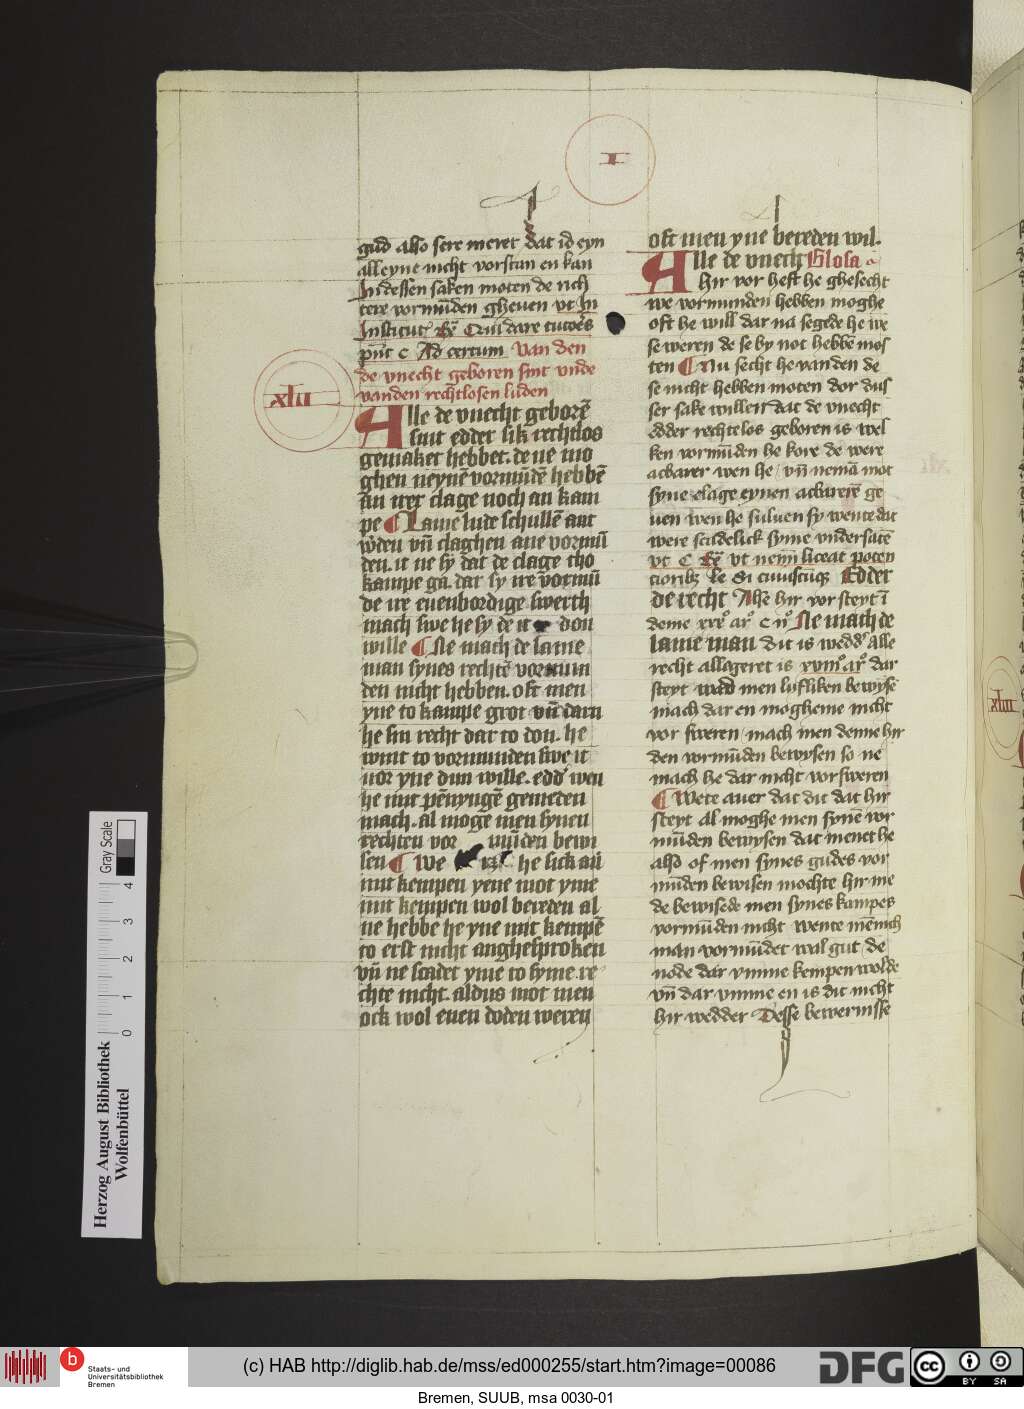 I
gud also sere meret dat id eyn
alleyne nicht vorstan en kan
In dessen saken moten de rich
tere vormūden gheuen vt In
Institut
c Ad certum van den
de vnecht geboren sint vnde
vanden rechtlosen luden
xlii
Alle de vnecht geborē
sint edder sik rechtlos
gemaket hebbet. de ne mo
ghen neynē vormūdē hebbē
an irer clage noch an kam
pe Lame lude schullē ant
den vn̄ claghen ane vormū
den. it ne sy dat de clage tho
kampe ga. dar sy ire vormū
de ire euenbordige swerth
mach swe he sy de it don
wille Ne mach de lame
man synes rechtē vormun
den nicht hebben. oft men
yne to kampe grot vn̄ darn
he sin recht dar to don. he
wint to vormunden swe it
vor yne dun wille. edd wen
he mit pēnyngē gemeden
mach. al moge men synen
rechten vor mūden bewi
sen We he sick an
mit kempen yene mot yme
mit kempen wol bereden al
ne hebbe he yne mit kempē
to erst nicht anghesproken
vn̄ ne scadet yme to syme re
chte nicht. aldus mot men
ock wol euen doden weren
oft men yne bereden wil.
Alle de vnech Glosa
hir vor heft he ghesecht
we vormunden hebben moghe
oft he will dar na segede he we
se weren de se by not hebbē mos
ten Nu secht he vanden de
se nicht hebben moten dor dus
ser sake willen dat de vnecht
edder rechtelos geboren is wel
ken vormūden he kore de were
acbarer wen he vn̄ nemā mot
syne clage eynen acbarerē ge
uen wen he suluen sy wente dat
were scadelick syme vndersatē
vt C vt nemī liceat poten
cioribus le Si cuiuscūq Edder
de recht Alse hir vor steyt ī
deme xxx ar c ii Ne mach de
lame man dit is wedd alle
recht allegeret is xviii ar dar
steyt wad men lofliken bewyse
mach dar en mogheme nicht
vor sweren mach men deme hir
den vormūden bewysen so ne
mach he dar nicht vor sweren
Wete auer dat dit dat hir
steyt al moghe men synē vor
mūden bewysen dat menet he
also of men synes gudes vor
mūden bewisen mochte hir me
de bewisede men synes kampes
vormūden nicht wente mēnich
man vormūdet wal gut de
node dar vmme kempen wolde
vn̄ dar vmme en is dit nicht
hir wedder Desse bewernisse
xliii
Gray Scale
0 1 2 3 4
Herzog August Bibliothek
Wolfenbüttel
b
Staats- und
Universitätsbibliothek
Bremen
(c) HAB http://diglib.hab.de/mss/ed000255/start.htm?image=00086
DFG
cc
BY SA
Bremen, SUUB, msa 0030-01